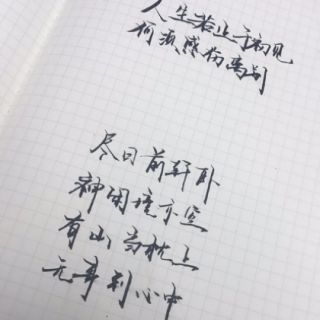 人生若止于初见
何须感伤离别
尽日前轩卧
神闲境亦空
有山当枕上
无事到心中